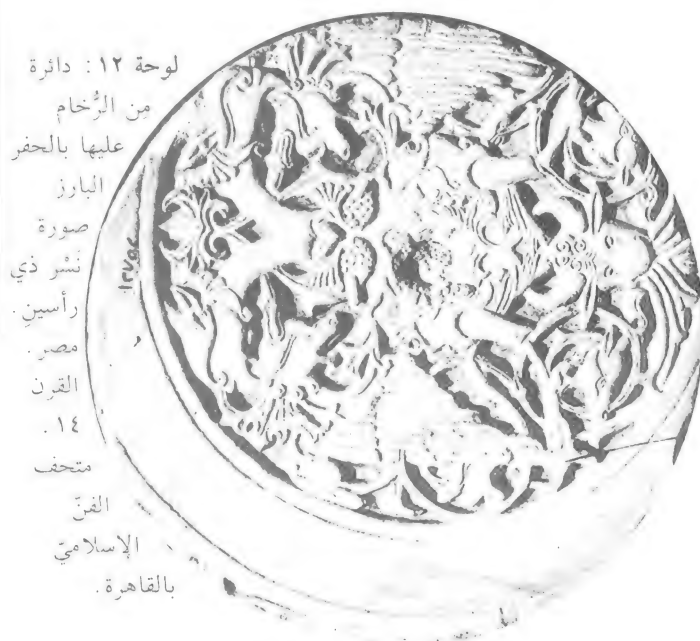 لوحة ١٢: دائرة
مِن الرُّخام
عليها بالحفر
البارز
صورة
نَسْر ذي
رأسينِ.
مصر.
القرن
١٤.
متحف
الفنّ
الإسلاميّ
بالقاهرة.